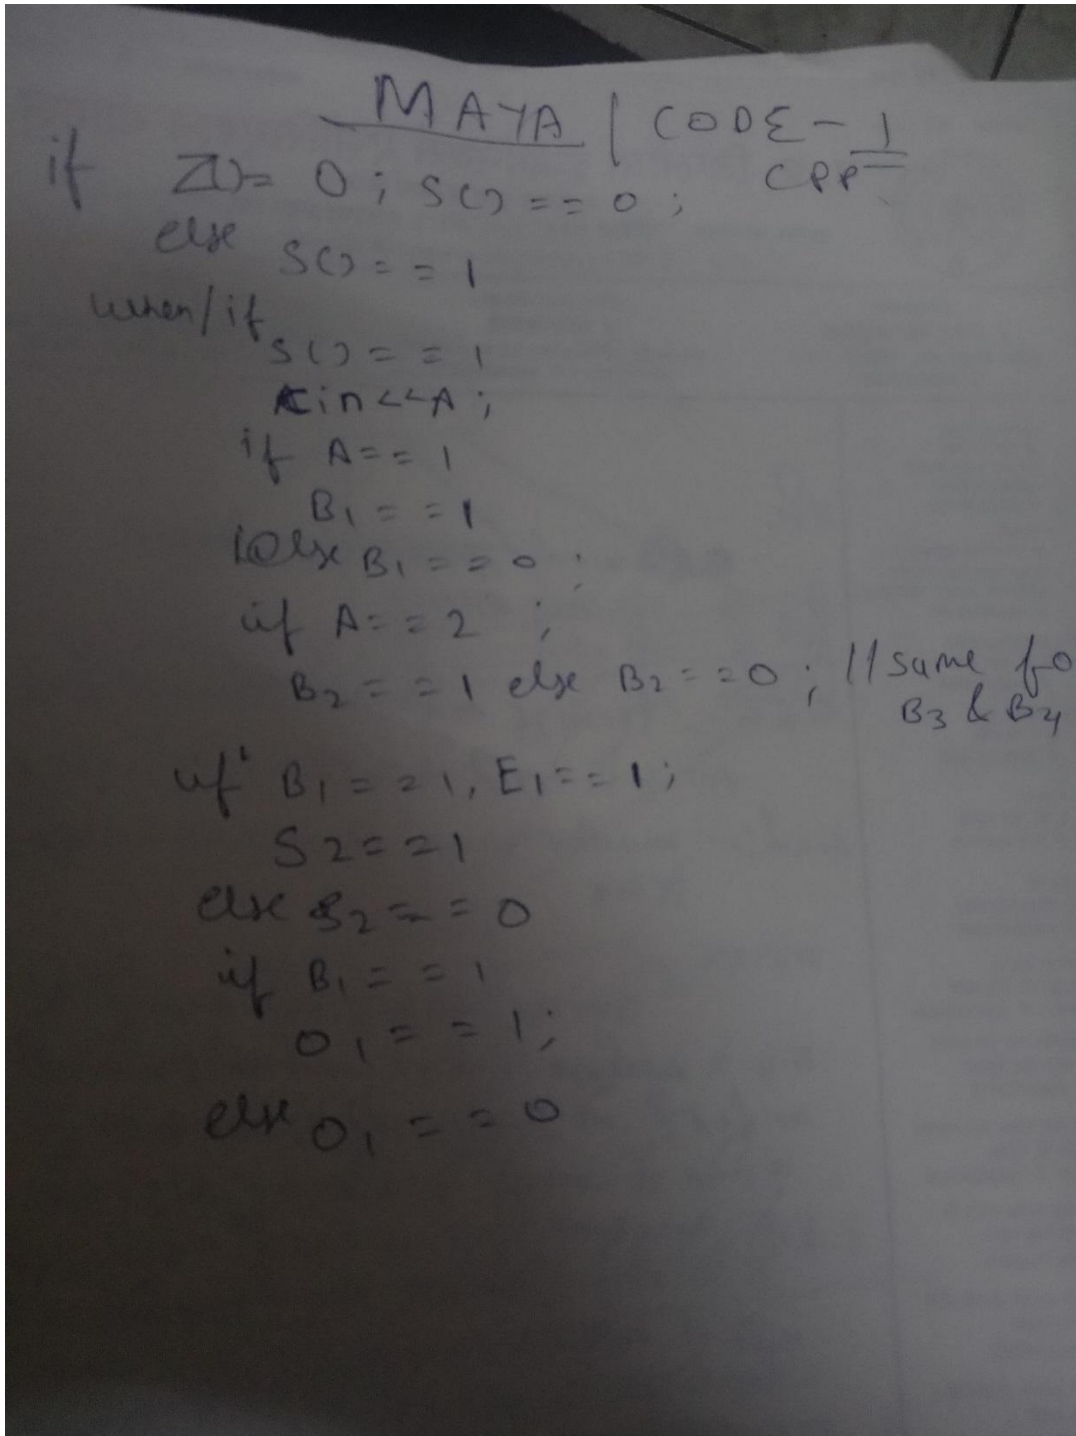 MAYA | CODE-1
CPP
if Z()= 0; S()==0;
else S()==1
when/if
S()==1
cin<<A;
if A==1
B1==1
else B1==0;
if A==2;
B2==1 else B2==0; //same fo
B3 & B4
if B1==1, E1==1;
S2==1
else S2==0
if B1==1
O1==1;
else O1==0